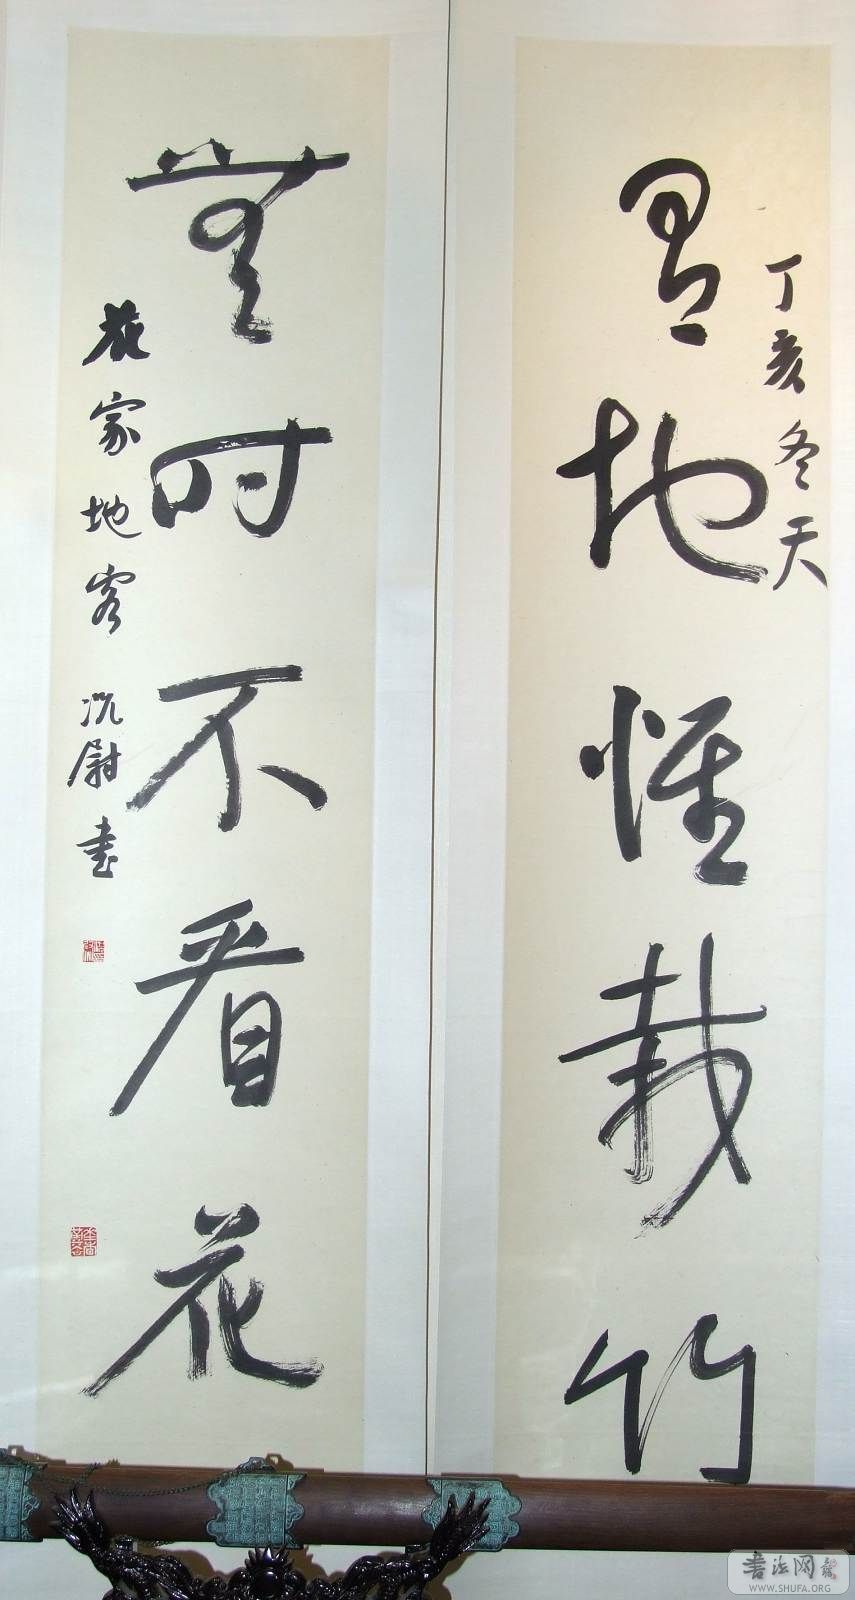 丁亥冬天
有地惟栽竹
無时不看花
花家地客
尉書
書法网
WWW.SHUFA.ORG